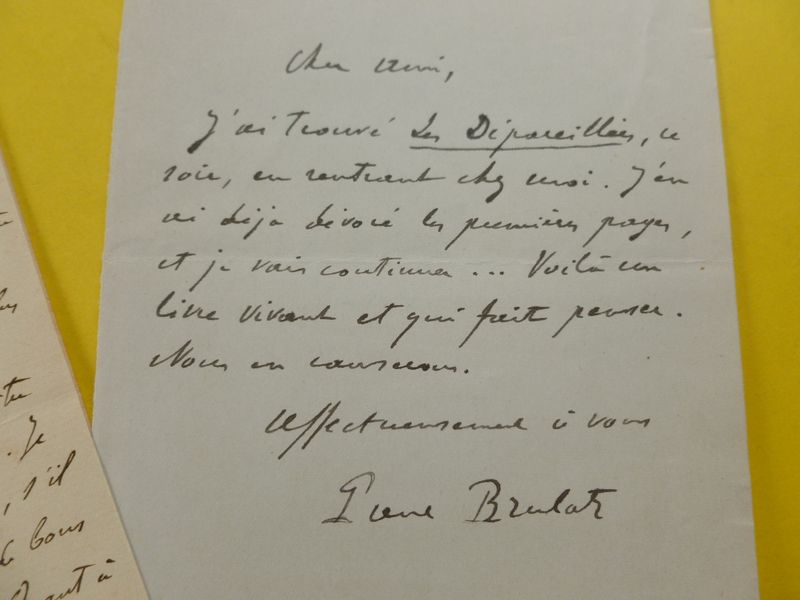 Cher ami,
J'ai trouvé Les Dépareillées, ce
soir, en rentrant chez moi. J'en
ai déjà dévoré les premières pages,
et je vais continuer... Voilà un
livre vivant et qui fait penser.
Nous en causerons.
Affectueusement à vous
Pierre Brulat
. Je
, s'il
bous